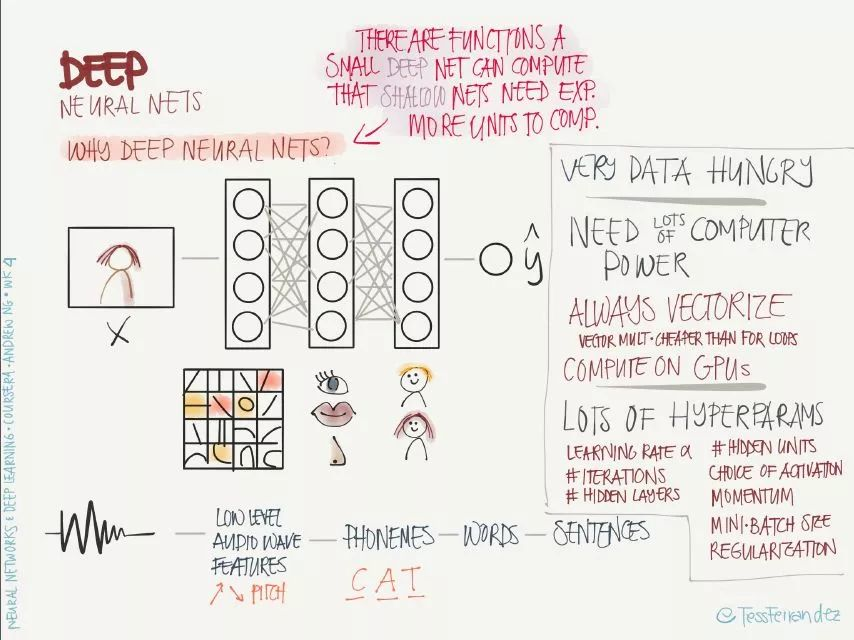 DEEP
NEURAL NETS
WHY DEEP NEURAL NETS?
THERE ARE FUNCTIONS A
SMALL DEEP NET CAN COMPUTE
THAT SHALLOW NETS NEED EXP.
MORE UNITS TO COMP.
X
ŷ
VERY DATA HUNGRY
NEED LOTS OF COMPUTER
POWER
ALWAYS VECTORIZE
VECTOR MULT. CHEAPER THAN FOR LOOPS
COMPUTE ON GPUs
LOTS OF HYPERPARAMS
LEARNING RATE α
# ITERATIONS
# HIDDEN LAYERS
# HIDDEN UNITS
CHOICE OF ACTIVATION
MOMENTUM
MINI-BATCH SIZE
REGULARIZATION
LOW LEVEL
AUDIO WAVE
FEATURES
↗↘ PITCH
PHONEMES
C A T
WORDS
SENTENCES
NEURAL NETWORKS & DEEP LEARNING • COURSERA • ANDREW NG • WK 4
@TessFerrandez